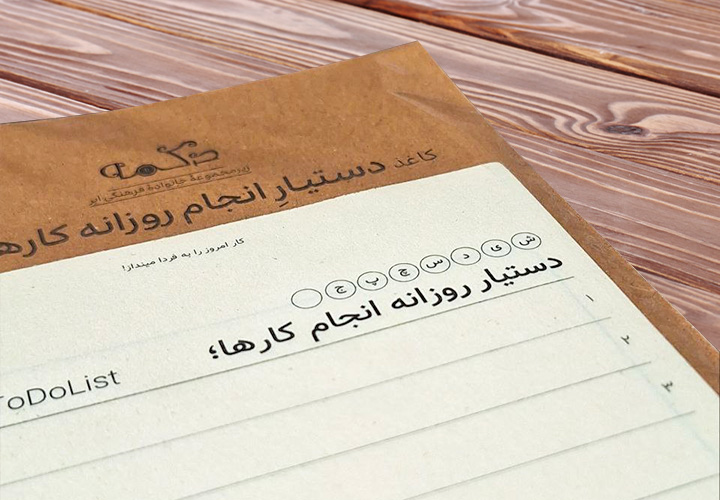 دکمه
زیرمجموعهٔ خانوادهٔ فرهنگی ابر
کاغذ دستیارِ انجام روزانه کارها
کار امروز را به فردا مینداز!
ش ی د س چ پ ج
دستیار روزانه انجام کارها؛
ToDoList
۱
۲
۳